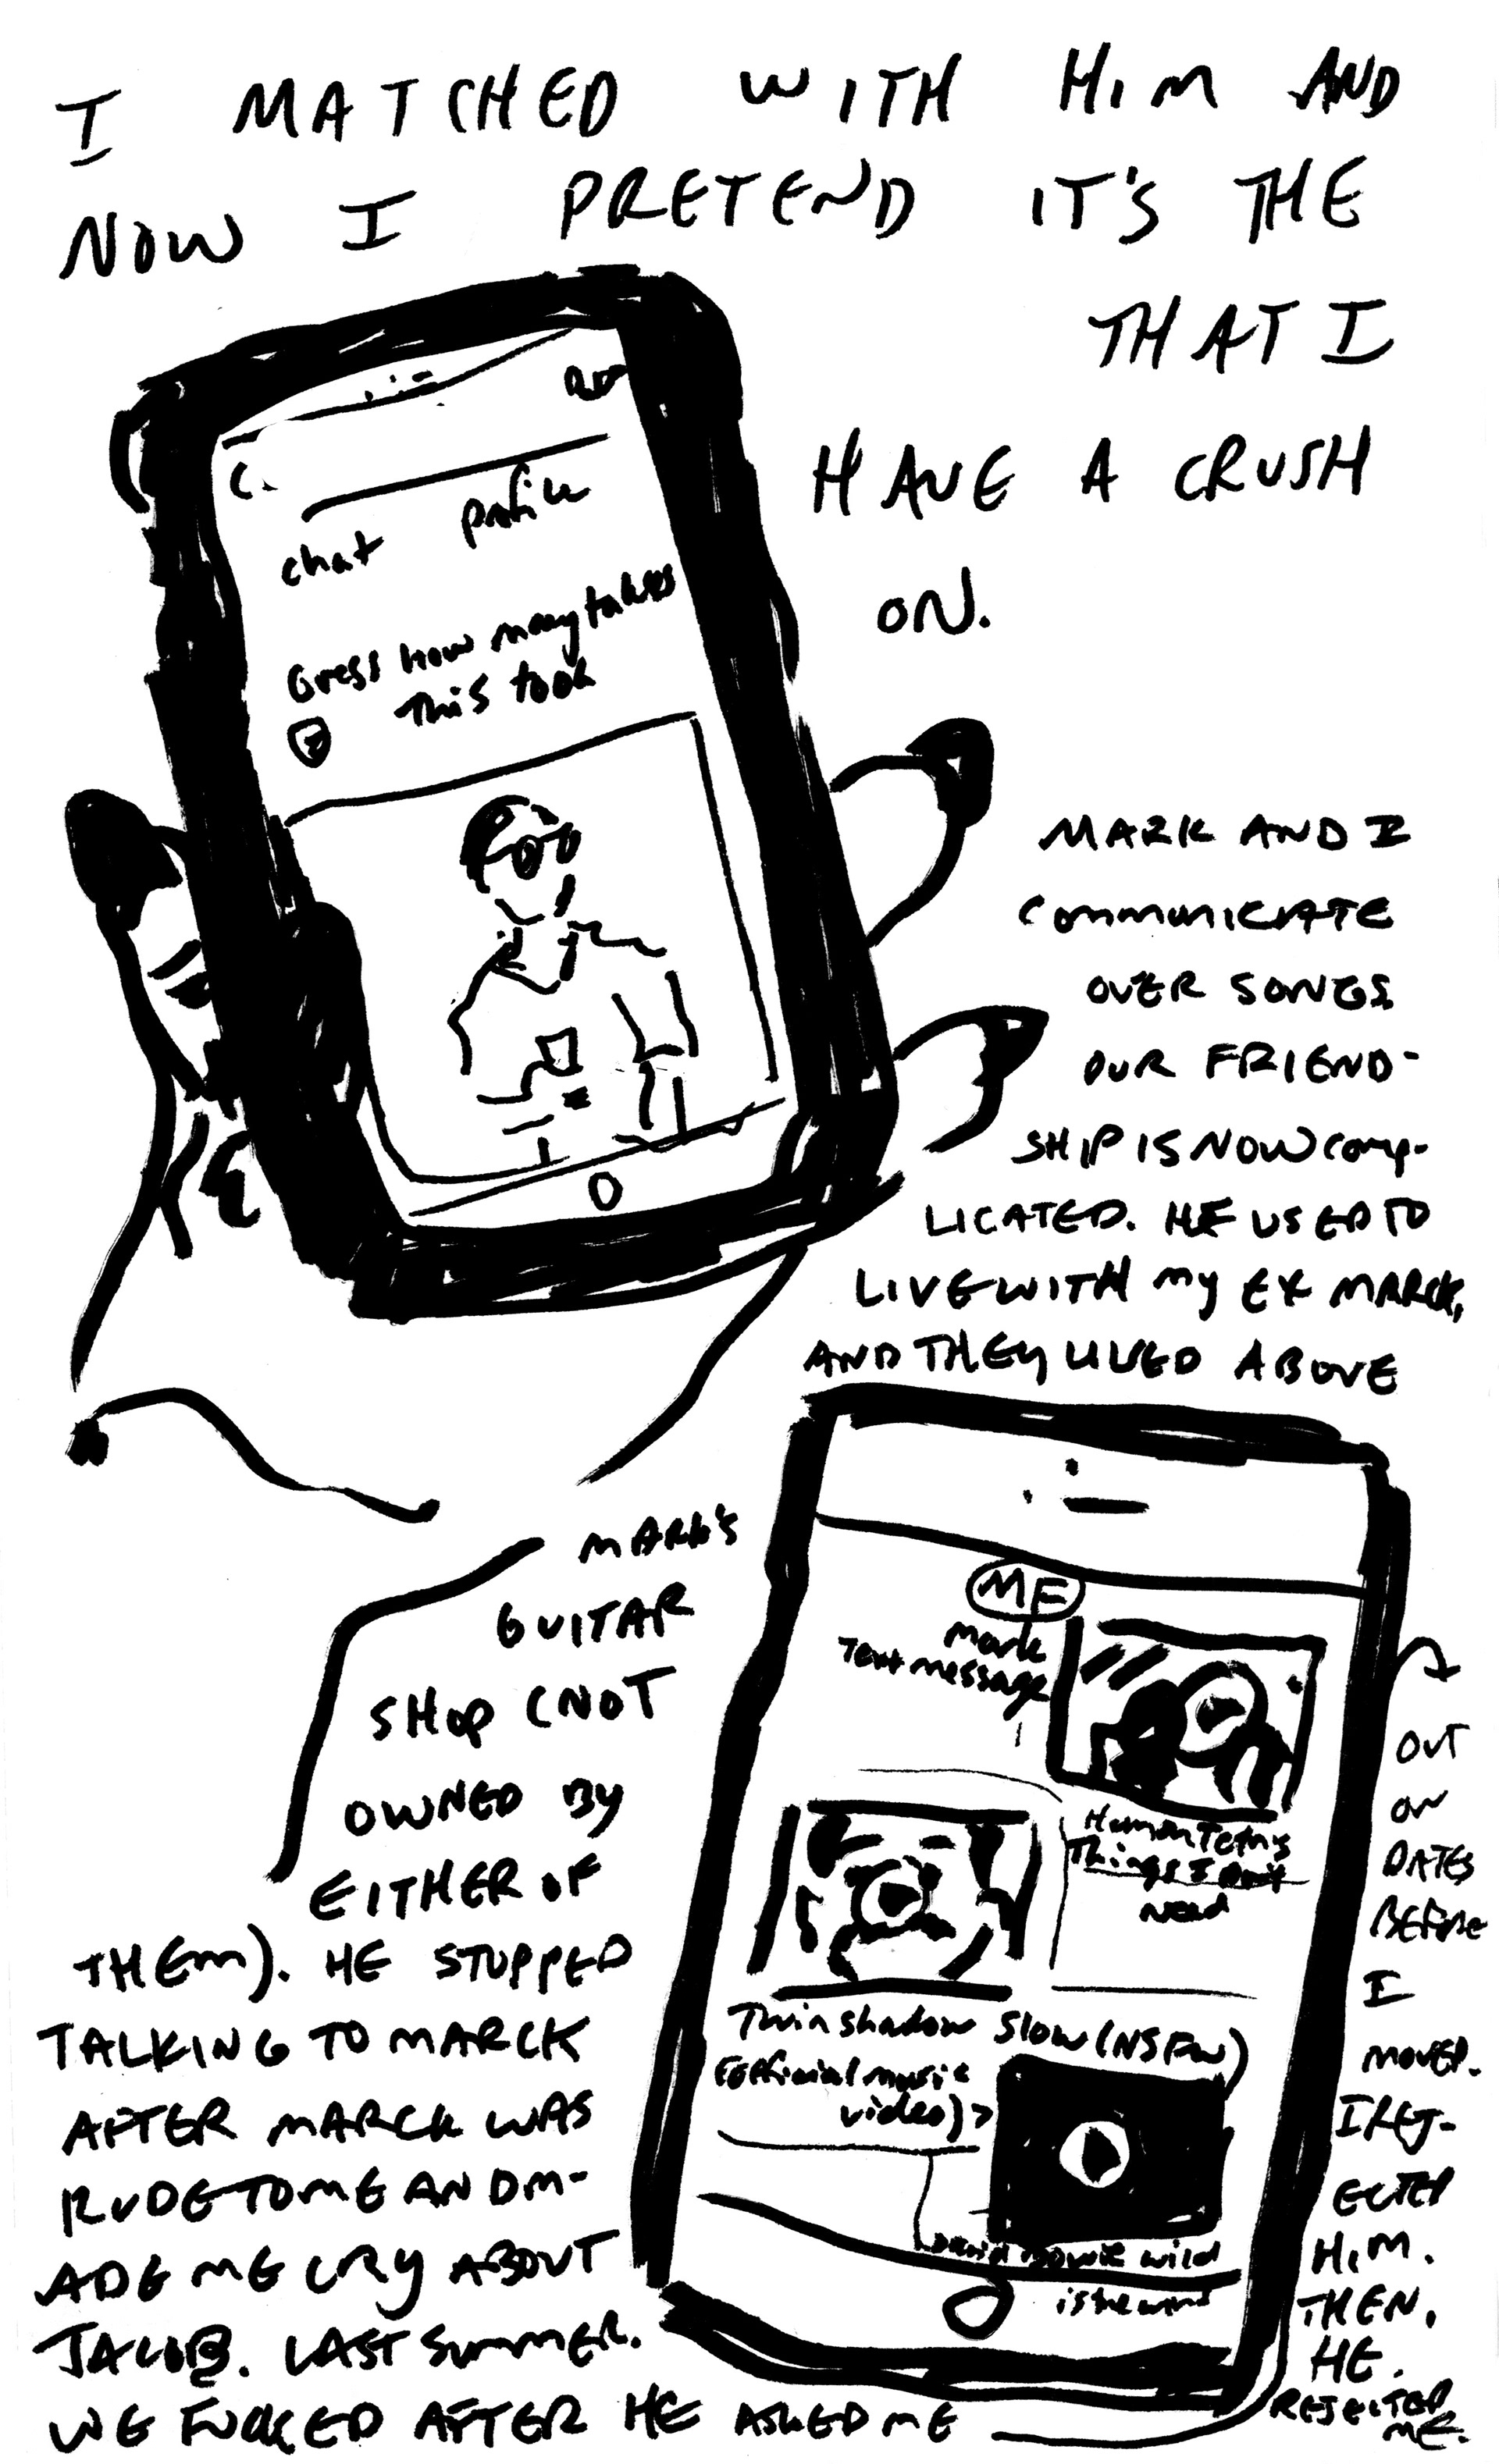 I MATCHED WITH HIM AND
NOW I PRETEND IT'S THE
THAT I
HAVE A CRUSH
ON.
chat profile
Guess how many takes
this took
MARK AND I
COMMUNICATE
OVER SONGS
OUR FRIEND-
SHIP IS NOW COMP-
LICATED. HE USED TO
LIVE WITH MY EX MARCK,
AND THEY LIVED ABOVE
MARK'S
GUITAR
SHOP (NOT
OWNED BY
EITHER OF
THEM). HE STOPPED
TALKING TO MARCK
AFTER MARCK WAS
RUDE TO ME AND M-
ADE ME CRY ABOUT
JACOB. LAST SUMMER.
WE FUCKED AFTER HE ASKED ME
OUT
ON
DATES
BEFORE
I
MOVED.
I REJ-
ECTED
HIM.
THEN,
HE.
REJECTED
ME.
MF
Mark
Text message
Human Tetris
Things I don't
need
Twin shadow Slow (NSFW)
(official music
video)>
David Bowie wild
is the wind